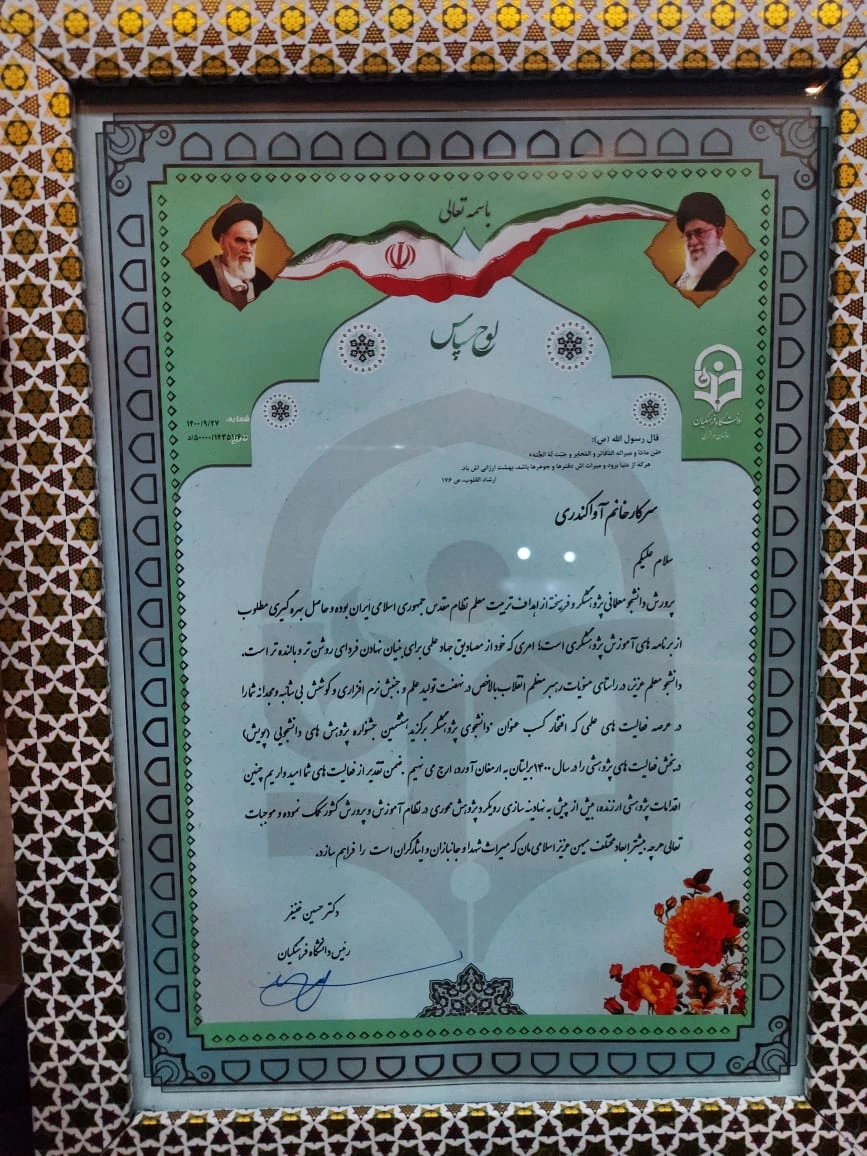 باسمه تعالی
لوح سپاس
شماره: ۱۴۰۰/۹/۲۷
۵۰۰۰۰/۱۴۳۵۱۱۶۰۰/د
دانشگاه فرهنگیان
سازمان مرکزی
قال رسول الله (ص):
«مَن ماتَ و میراثه الدّفاتر و المَحابر وَ جَبَت لَهُ الجَنّه»
هرکه از دنیا برود و میراث اش دفترها و جوهرها باشد، بهشت ارزانی اش باد.
ارشاد القلوب، ص ۱۷۶
سرکار خانم آوا کندری
سلام علیکم
پرورش دانشجو معلمانی پژوهشگر و فریخته از اهداف تربیت معلم نظام مقدس جمهوری اسلامی ایران بوده و حاصل بهره گیری مطلوب
از برنامه های آموزش پژوهشگری است؛ امری که خود از مصادیق جهاد علمی برای بنیان نهادن فردای روشن تر و بالنده تر است.
دانشجو معلم عزیز، در راستای منویات رهبر معظم انقلاب بالاخص در نهضت تولید علم و جنبش نرم افزاری و کوشش بی شائبه و مجدانه شما را
در عرصه فعالیت های علمی که افتخار کسب عنوان "دانشجوی پژوهشگر برگزیده هشتمین جشنواره پژوهش های دانشجویی (پویش)
در بخش فعالیت های پژوهشی را در سال ۱۴۰۰ برایتان به ارمغان آورد، ارج می نهیم. ضمن تقدیر از فعالیت های شما امید واریم چنین
اقدامات پژوهشی ارزنده، بیش از پیش به نهادینه سازی رویکرد پژوهش محوری در نظام آموزش و پرورش کشور کمک نموده و موجبات
تعالی هرچه بیشتر ابعاد مختلف میهن عزیز اسلامی مان که میراث شهدا و جانبازان و ایثارگران است را فراهم سازد.
دکتر حسین خنیفر
رئیس دانشگاه فرهنگیان